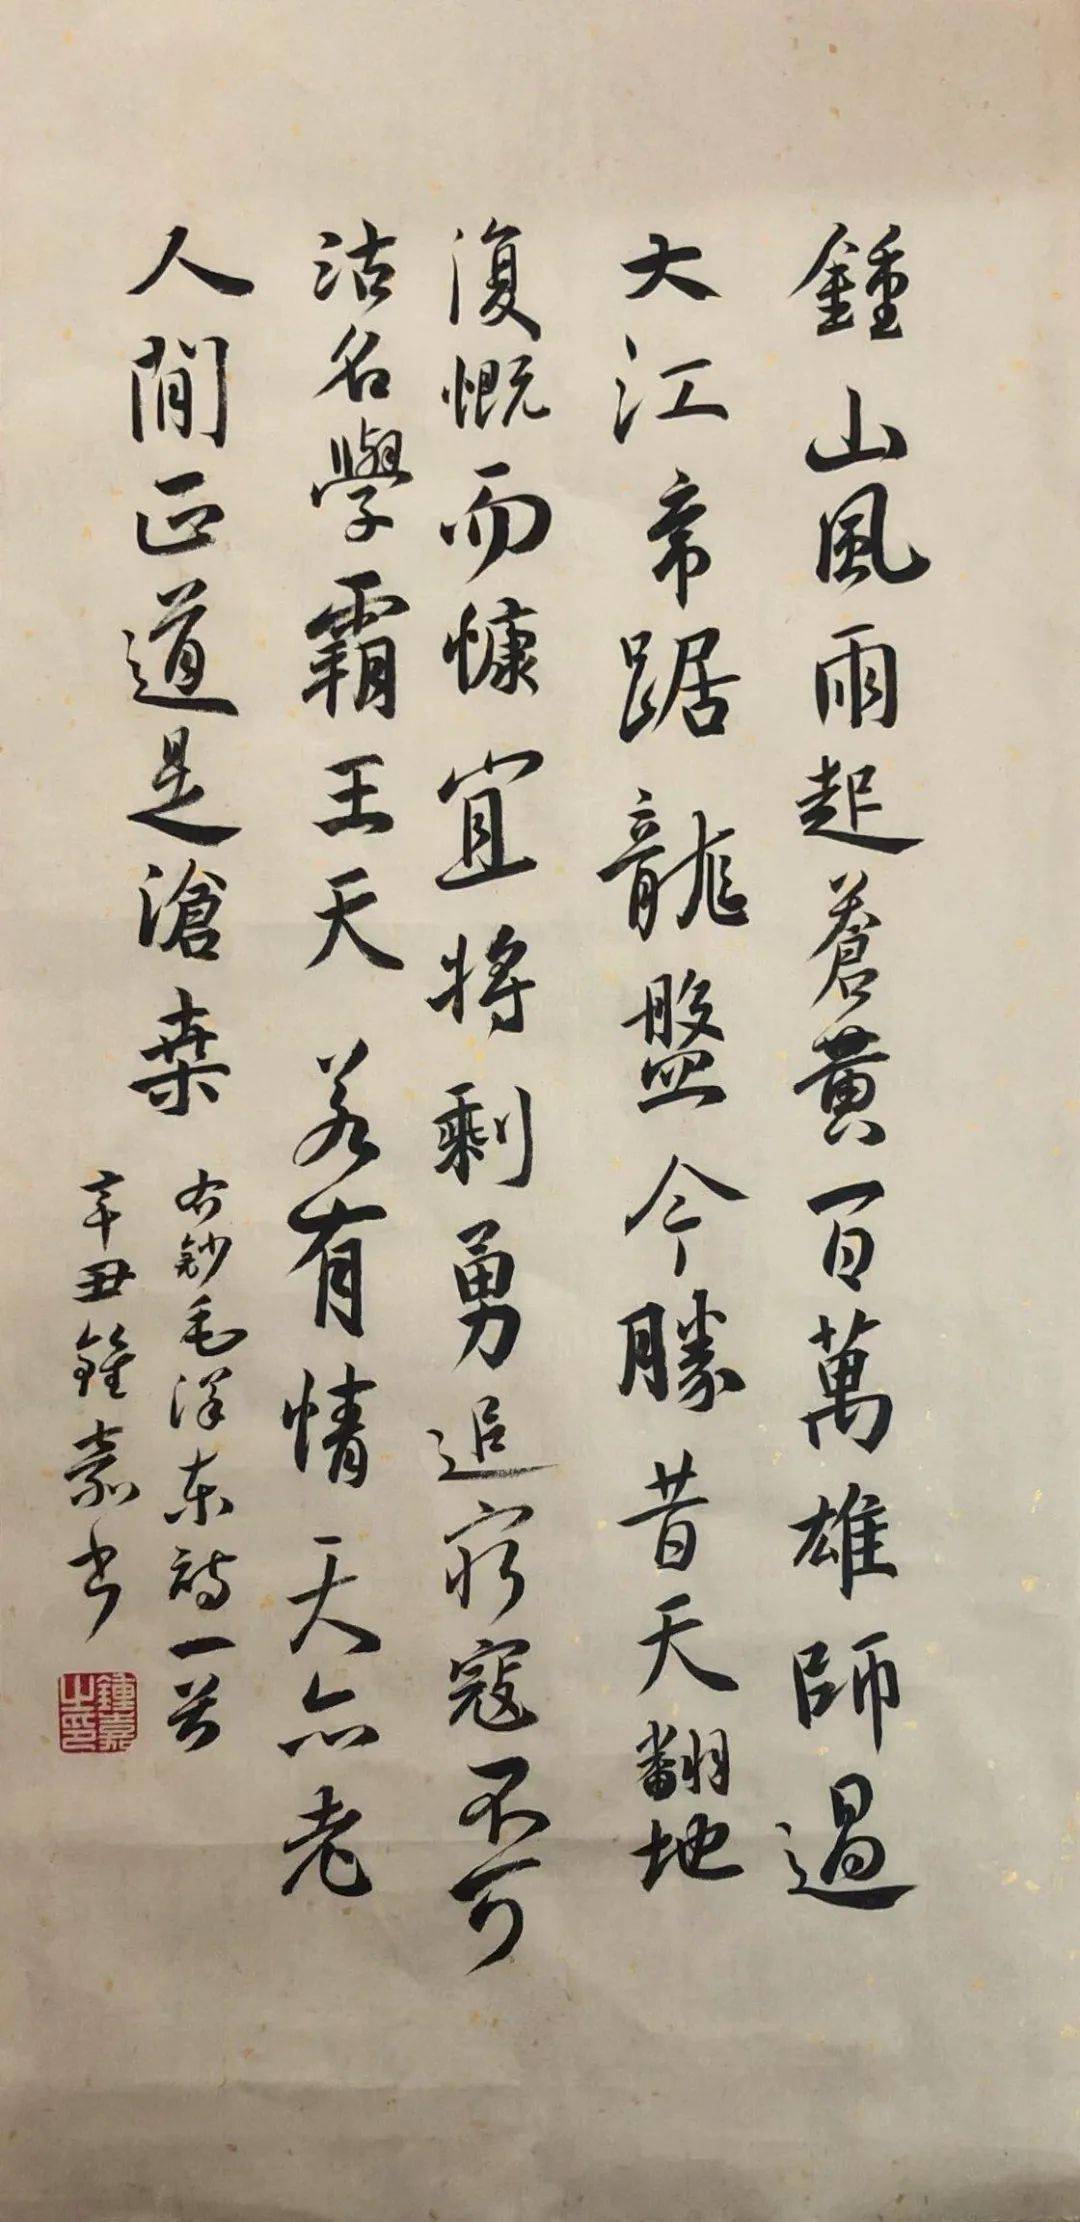 鍾山風雨起蒼黃百萬雄師過
大江帝踞龍盤今勝昔天翻地
復慨而慷宜將剩勇追窮寇不可
沽名學霸王天若有情天亦老
人間正道是滄桑
右鈔毛澤东詩一首
辛丑鍾嘉书
鍾嘉之印